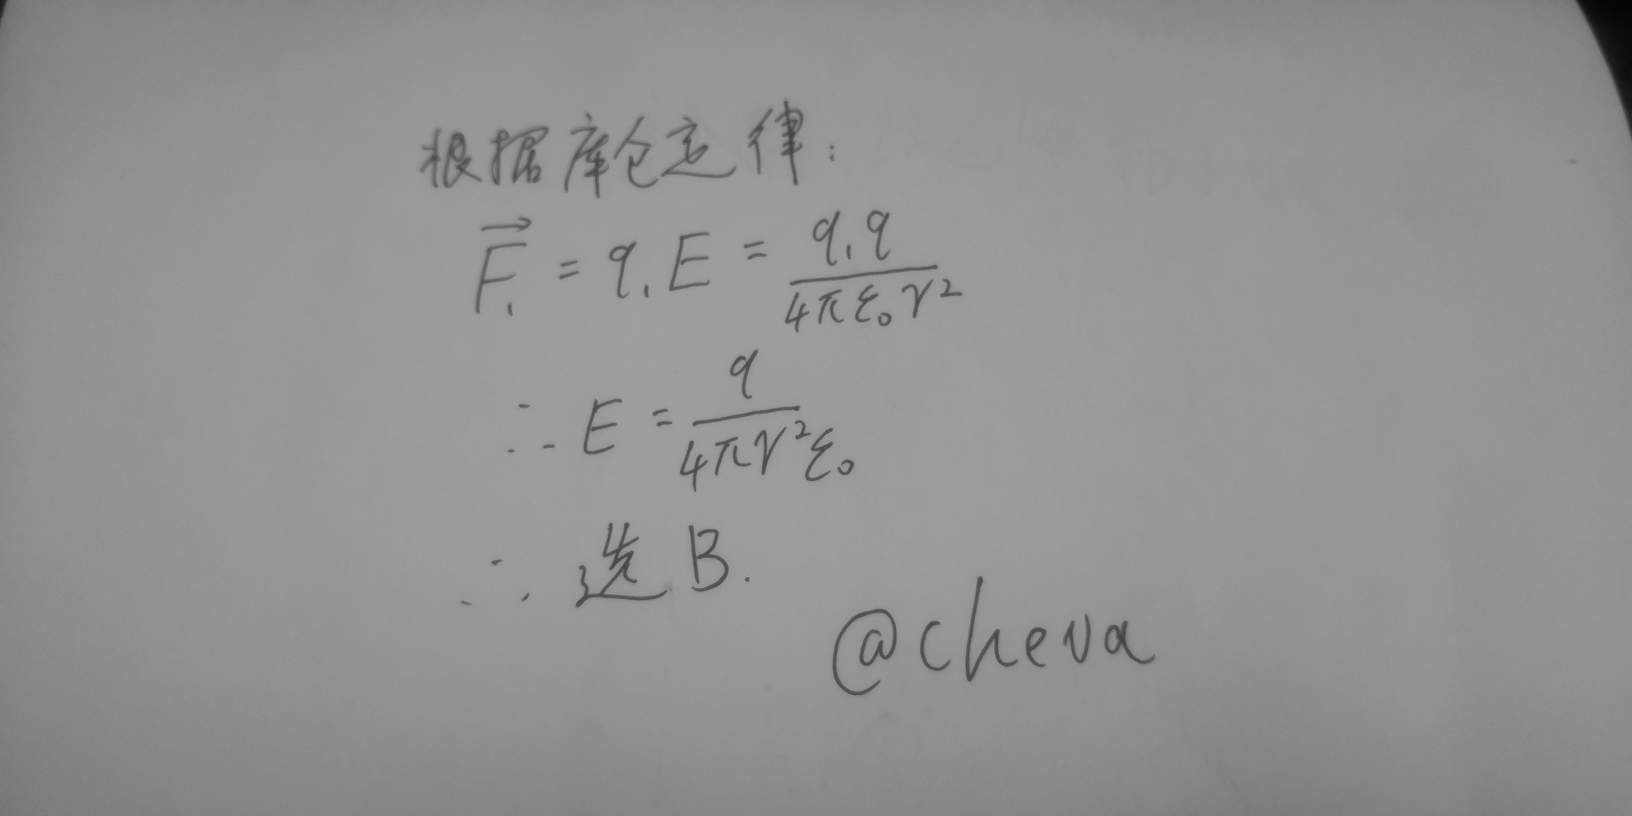 根据库仑定律:
$\vec{F_1} = q_1 E = \frac{q_1 q}{4\pi \varepsilon_0 r^2}$
∴ $E = \frac{q}{4\pi r^2 \varepsilon_0}$
∴ 选B.
@cheva